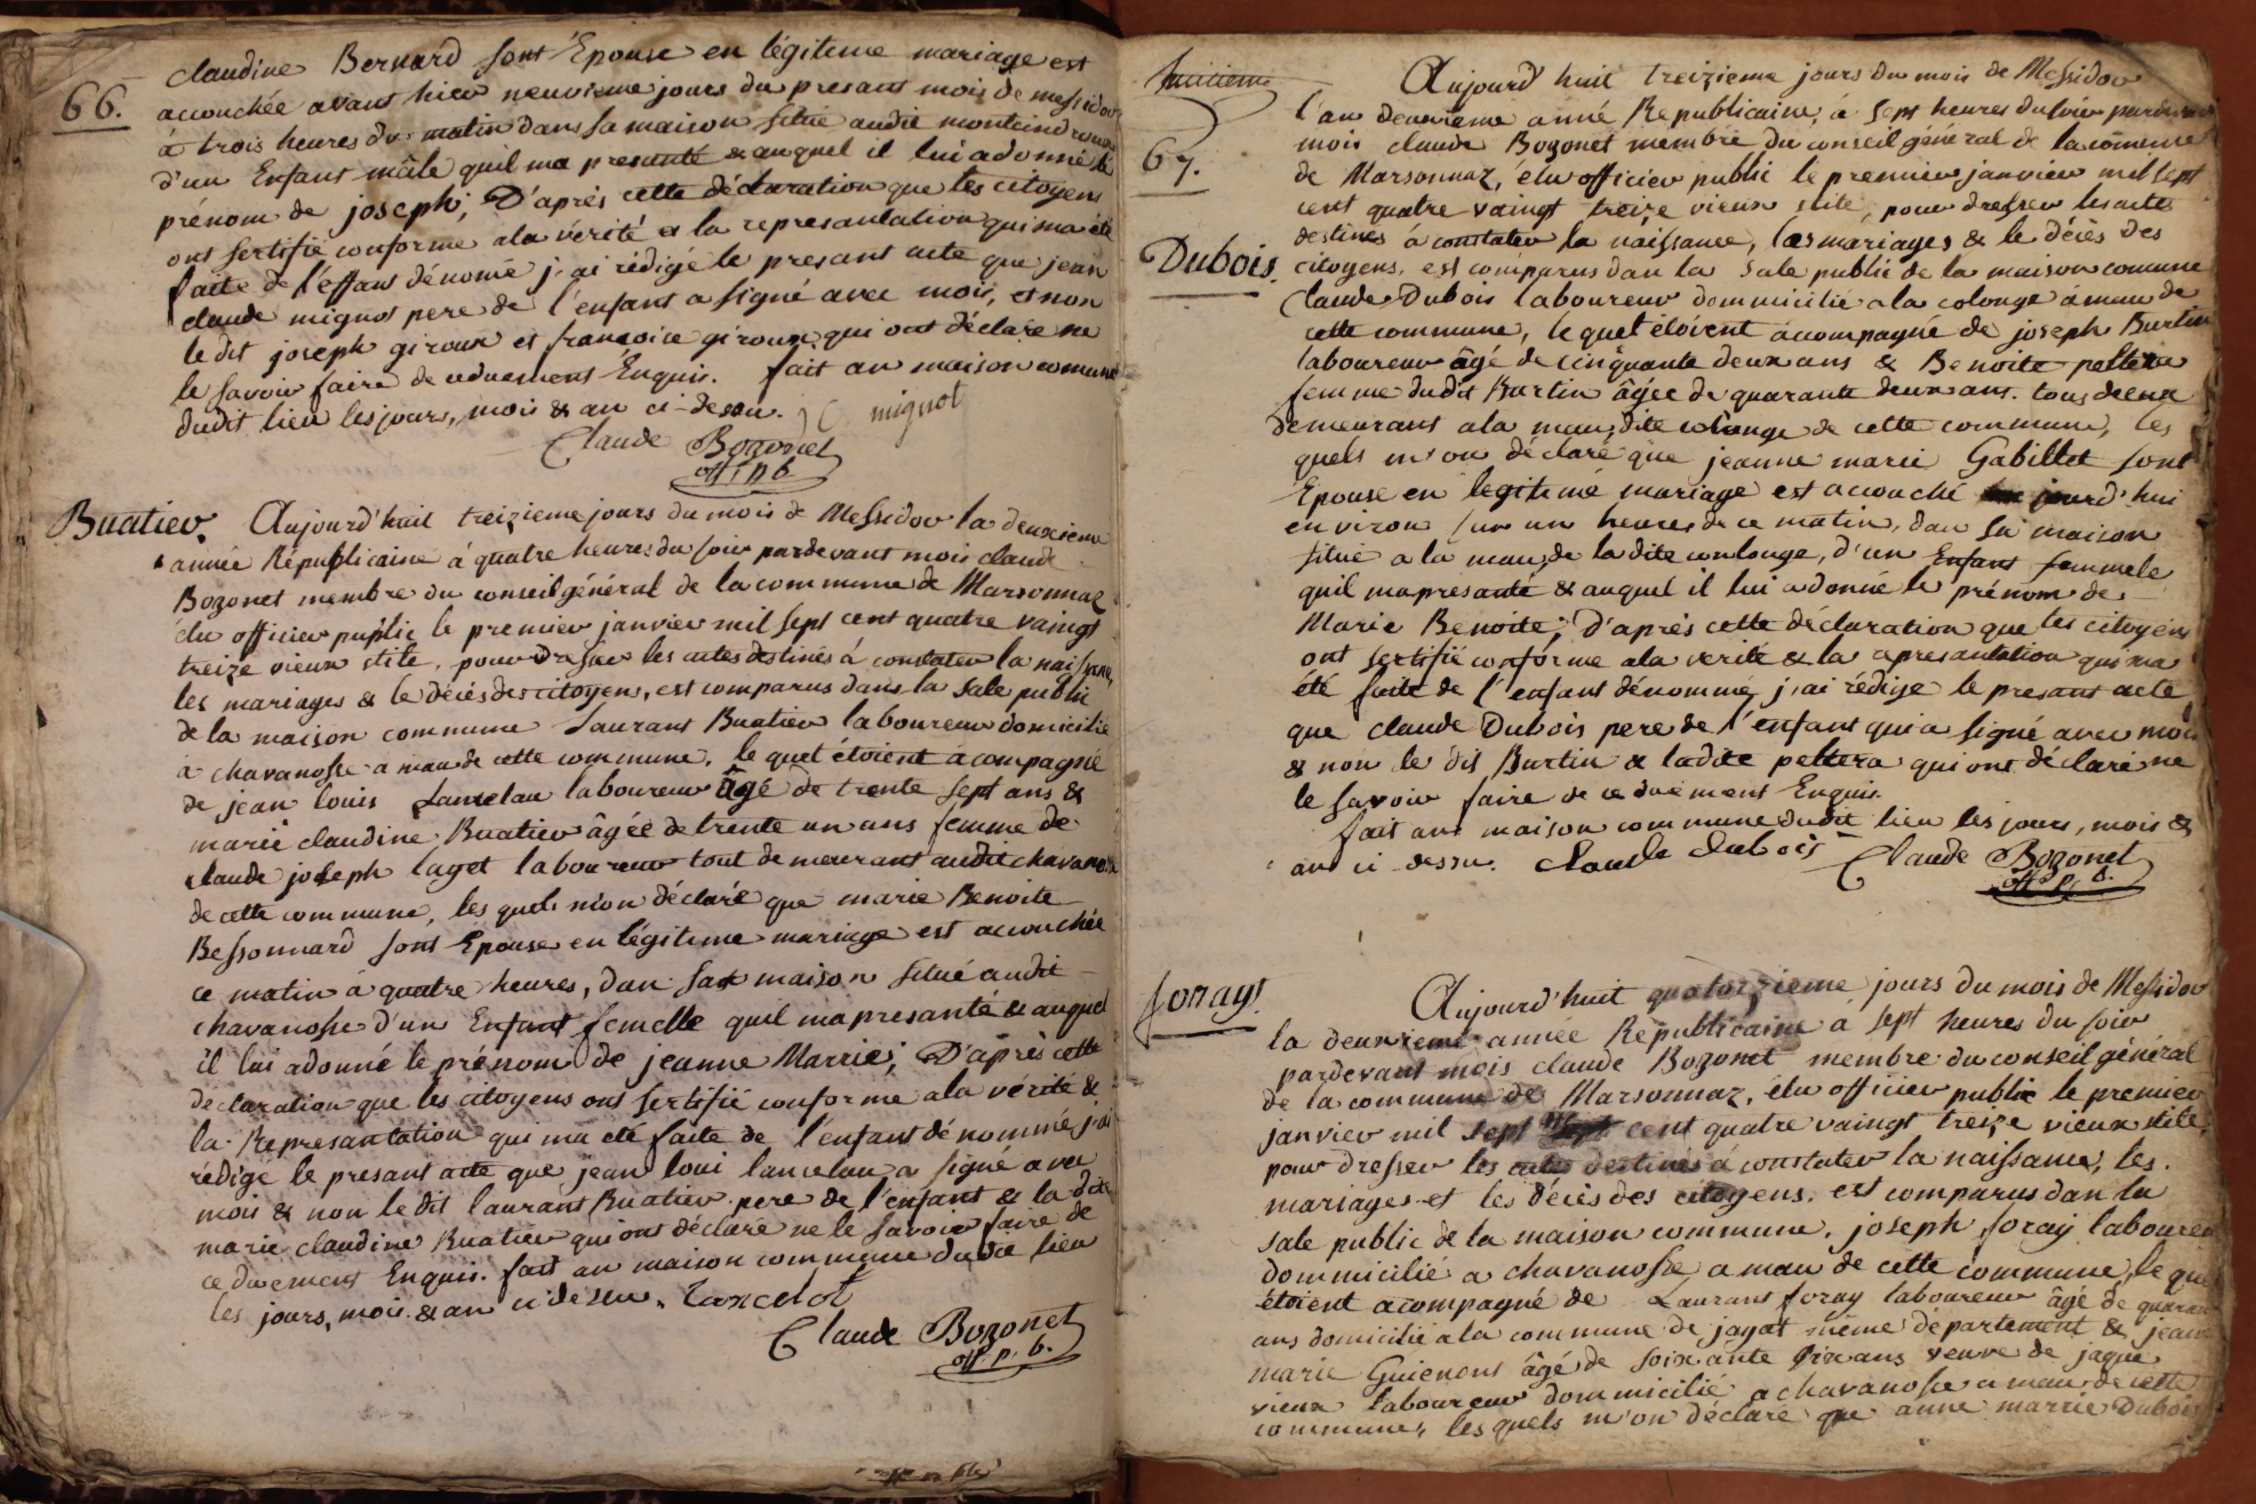 66.
claudine Bernard sont Epouse en légitime mariage est
accouchée avant hier neuvieme jours du presant mois de messidor
à trois heures du matin dans sa maison situé audit montcind
d'un Enfant mâle quil ma presanté & auquel il lui a donné le
prénom de joseph; D'aprés cette déclaration que les citoyens
ont sertifié conforme a la vérité & la represantation qui ma été
faite de l'effant dénomé j'ai rédigé le presant acte que jean
claude mignot pere de l'enfant a signé avec mois, et non
le dit joseph giroux et francoise giroux qui ont déclaré ne
le savoir faire de ce duement Enquis. fait an maison comune
dudit lieu les jours, mois & an ci-desu. J C mignot
Claude Bozonet
off. p. b.
Buatier. Aujourd'huit treizieme jours du mois de Messidor la deuxieme
année Républicaine à quatre heures du soir pardevant mois claude
Bozonet membre du conseil général de la commune de Marsonnaz
élu officier public le premier janvier mil sept cent quatre vaingt
treize vieux stile, pour dresser les actes destinés á constater la naissance,
les mariages & le décés des citoyens, est comparus dans la sale public
de la maison commune Laurans Buatier laboureur domicilié
a chavanosse a mau de cette commune, le quel étoient acompagné
de jean louis Lancelau laboureur âgé de trente sept ans &
marie claudine Buatier âgée de trente un ans femme de
claude joseph laget laboureur tout demeurant audit chavanosse
de cette commune, les quels m'on déclaré que marie Benoite
Bessonnard sont Epouse en légitime mariage est accouchée
ce matin à quatre heures, dan sa maison situé audit
chavanosse d'un Enfant femelle quil ma presanté & auquel
il lui a donné le prénom de jeanne Marrie; D'aprés cette
declaration que les citoyens ont sertifié conforme a la vérité &
la Represantation qui ma eté faite de l'enfant dénommé j'ai
rédige le presant acte que jean loui lancelau a signé avec
mois & non le dit laurant Buatier pere de l'enfant & la dite
marie claudine Buatier qui ont déclaré ne le savoir faire de
ce duement Enquis. fait an maison commune dudit lieu
les jours, mois & an ci desu. Lancelot
Claude Bozonet
off. p. b.
67.
Dubois.
Aujourd'huit treizieme jours du mois de Messidor
l'an deuxieme anné Republicaine, à sept heures du soir pardevant
mois claude Bozonet membre du conseil général de la comune
de Marsonnaz, élu officier public le premier janvier mil sept
cent quatre vaingt treize vieux stile, pour dresser les acte
destinés à constater la naissance, les mariages & le décès des
citoyens, est comparus dan la sale public de la maison comune
Claude Dubois laboureur dommicilié a la colonge á mau de
cette commune, le quel étoient acompagné de joseph Burtin
laboureur âgé de cinquante deux ans & Benoite peltera
femme dudit Burtin âgée de quarante deux ans. tous deux
demeurans a la mau dite colonge de cette commune, les
quels m'on déclaré que jeanne marie Gabillet sont
Epouse en legitimé mariage est accouché jourd'hui
environ sur un heures de ce matin, dan sa maison
situé a la mau de la dite conlonge, d'un Enfant femmele
quil ma presanté & auquel il lui a donné le prénom de
Marie Benoite; D'aprés cette déclaration que les citoyens
ont sertifié conforme a la verité & la represantation qui ma
été faite de l'enfant dénommé, j'ai rédige le presant acte
que claude Dubois pere de l'enfant qui a signé avec mois
& non le dit Burtin & ladite peltera qui ont déclaré ne
le savoir faire de ce duement Enquis.
fait an maison commune dudit lieu les jours, mois &
an ci dessu. Claude dubois Claude Bozonet
off. p. b.
foray.
Aujourd'huit quatorzieme jours du mois de Messidor
la deuxieme année Republicaine à sept heures du soir
pardevant mois claude Bozonet membre du conseil général
de la commune de Marsonnaz, élu officier public le premier
janvier mil sept cent quatre vaingt treize vieux stile,
pour dresser les actes destinés à constater la naissance, les
mariages et les décès des citoyens, est comparus dan la
sale public de la maison commune, joseph foray laboureur
dommicilié a chavanosse a mau de cette commune, le quel
étoient acompagné de Laurans foray laboureur âgé de quarante
ans domicilié a la commune de jayat même département & jeanne
marie Guienont âgé de soixante dix ans veuve de jaque
vieux laboureur dommicilié a chavanosse a mau de cette
commune, les quels m'on déclaré que anne marrie Dubois